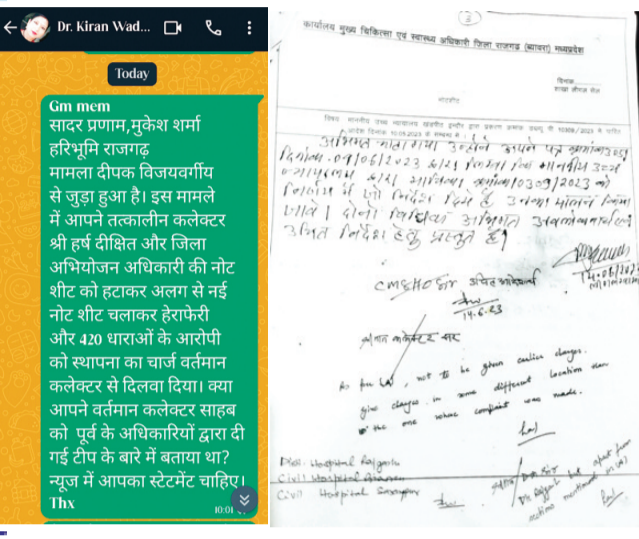 Dr. Kiran Wad...
Today
Gm mem
सादर प्रणाम,मुकेश शर्मा
हरिभूमि राजगढ़
मामला दीपक विजयवर्गीय
से जुड़ा हुआ है। इस मामले
में आपने तत्कालीन कलेक्टर
श्री हर्ष दीक्षित और जिला
अभियोजन अधिकारी की नोट
शीट को हटाकर अलग से नई
नोट शीट चलाकर हेराफेरी
और 420 धाराओं के आरोपी
को स्थापना का चार्ज वर्तमान
कलेक्टर से दिलवा दिया। क्या
आपने वर्तमान कलेक्टर साहब
को पूर्व के अधिकारियों द्वारा दी
गई टीप के बारे में बताया था?
न्यूज में आपका स्टेटमेंट चाहिए।
Thx
10:01
3
कार्यालय मुख्य चिकित्सा एवं स्वास्थ्य अधिकारी जिला राजगढ़ (ब्यावरा) मध्यप्रदेश
दिनांक
शाखा लीगल सेल
नोटशीट
विषय माननीय उच्च न्यायालय खंडपीठ इन्दौर द्वारा प्रकरण क्रमांक 10309/2023 में पारित
आदेश दिनांक 10.05.2023 के सम्बन्ध में।
अभिमत उन्होंने अपने पत्र क्रमांक
दिनांक 09/06/2023 द्वारा माननीय उच्च
न्यायालय द्वारा याचिका क्रमांक 10309/2023 को
निर्णय में जो निर्देश दिये है उनका पालन किया
जावे। दोनों अभिमत
उचित निर्देश हेतु प्रस्तुत है।
14.06.202
CM&HO Sir उचित
14.6.23
श्रीमान कलेक्टर सर
As per (A), not to be given earlier charges.
give charges in some different location than
the one where complaint was made.
Dist. Hospital Rajgarh
Civil Hospital
Civil Hospital Sarangpur
apart from
mentioned in (A)